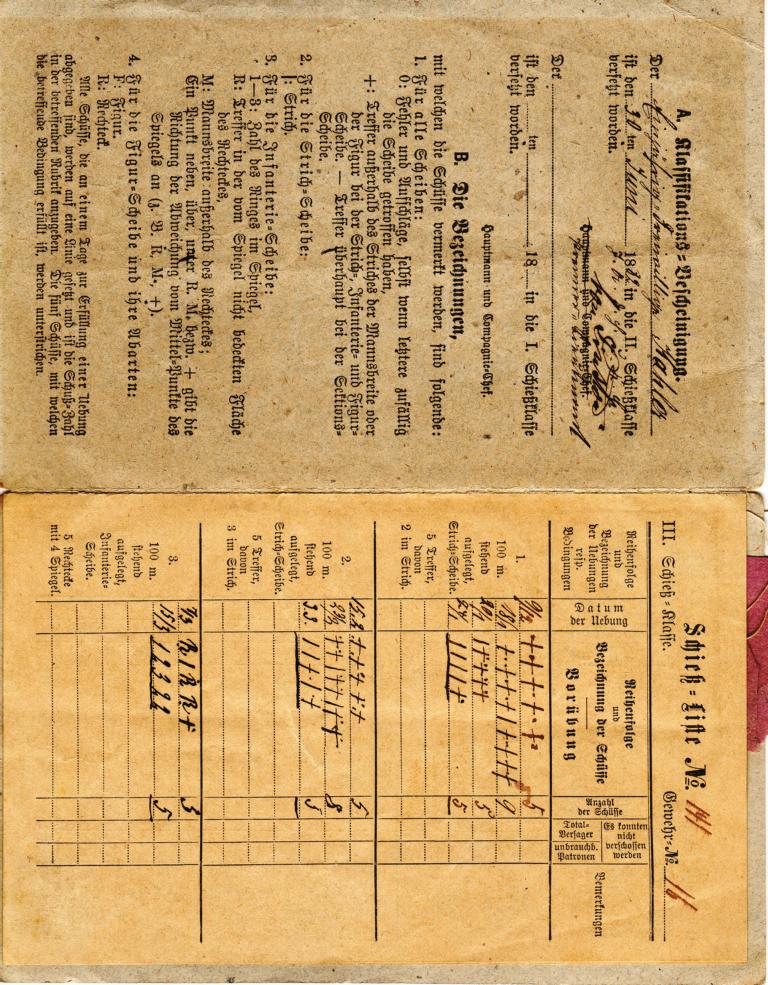 A. Klassifikations=Bescheinigung.
Der Einjährig-Freiwillige Mahler
ist den 30 ten Juni 1882 in die II. Schießklasse
versetzt worden.
Hauptmann und Compagnie=Chef.
Der
ist den ten 18 in die I. Schießklasse
versetzt worden.
Hauptmann und Compagnie=Chef.
B. Die Bezeichnungen,
mit welchen die Schüsse vermerkt werden, sind folgende:
1. Für alle Scheiben:
0: Fehler und Aufschläge, selbst wenn letztere zufällig
die Scheibe getroffen haben,
+: Treffer außerhalb des Striches der Mannsbreite oder
der Figur bei der Strich=, Infanterie= und Figur=
Scheibe. — Treffer überhaupt bei der Sektions=
Scheibe.
2. Für die Strich=Scheibe:
|: Strich.
3. Für die Infanterie=Scheibe:
1—3: Zahl des Ringes im Spiegel,
R: Treffer in der vom Spiegel nicht bedeckten Fläche
des Rechteckes,
M: Mannsbreite außerhalb des Rechteckes;
Ein Punkt neben, über, unter R. M. bezw. + gibt die
Richtung der Abweichung vom Mittel=Punkte des
Spiegels an (z. B. R, M·, +).
4. Für die Figur=Scheibe und ihre Abarten:
F: Figur.
R: Rechteck.
Alle Schüsse, die an einem Tage zur Erfüllung einer Uebung
abgegeben sind, werden auf eine Linie gesetzt und ist die Schuß=Zahl
in der betreffenden Rubrik anzugeben. Die fünf Schüsse, mit welchen
die betreffende Bedingung erfüllt ist, werden unterstrichen.
Schieß=Liste No. 141
III. Schieß=Klasse. Gewehr=No. 16
Reihenfolge
und
Bezeichnung
der Uebungen
resp.
Bedingungen
Datum
der Uebung
Reihenfolge
und
Bezeichnung der Schüsse
Vorübung
Anzahl
der Schüsse
Es konnten
nicht
verschossen
werden
Total=
Versager
unbrauchb.
Patronen
Bemerkungen
1.
100 m.
stehend
aufgelegt,
Strich=Scheibe.
5 Treffer,
davon
2 im Strich.
5
9
5
5
2.
100 m.
stehend
aufgelegt,
Strich=Scheibe.
5 Treffer,
davon
3 im Strich.
5
8
5
3.
100 m.
stehend
aufgelegt,
Infanterie=
Scheibe.
5 Rechtecke
mit 4 Spiegel.
7/3 R 1 R R + 5
15/3 5